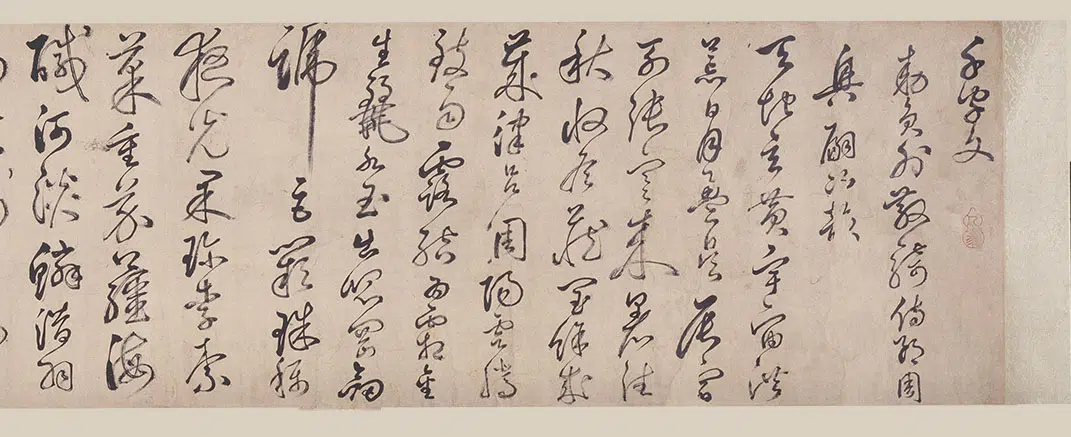 千字文
勅員外散騎侍郎周
興嗣次韻
天地玄黄宇宙洪
荒日月盈昃辰宿
列張寒来暑往
秋收冬藏閏餘成
歲律呂調陽雲騰
致雨露結為霜金
生麗水玉出崑岡劍
號巨闕珠稱
夜光果珍李柰
菜重芥薑海
鹹河淡鱗潛羽